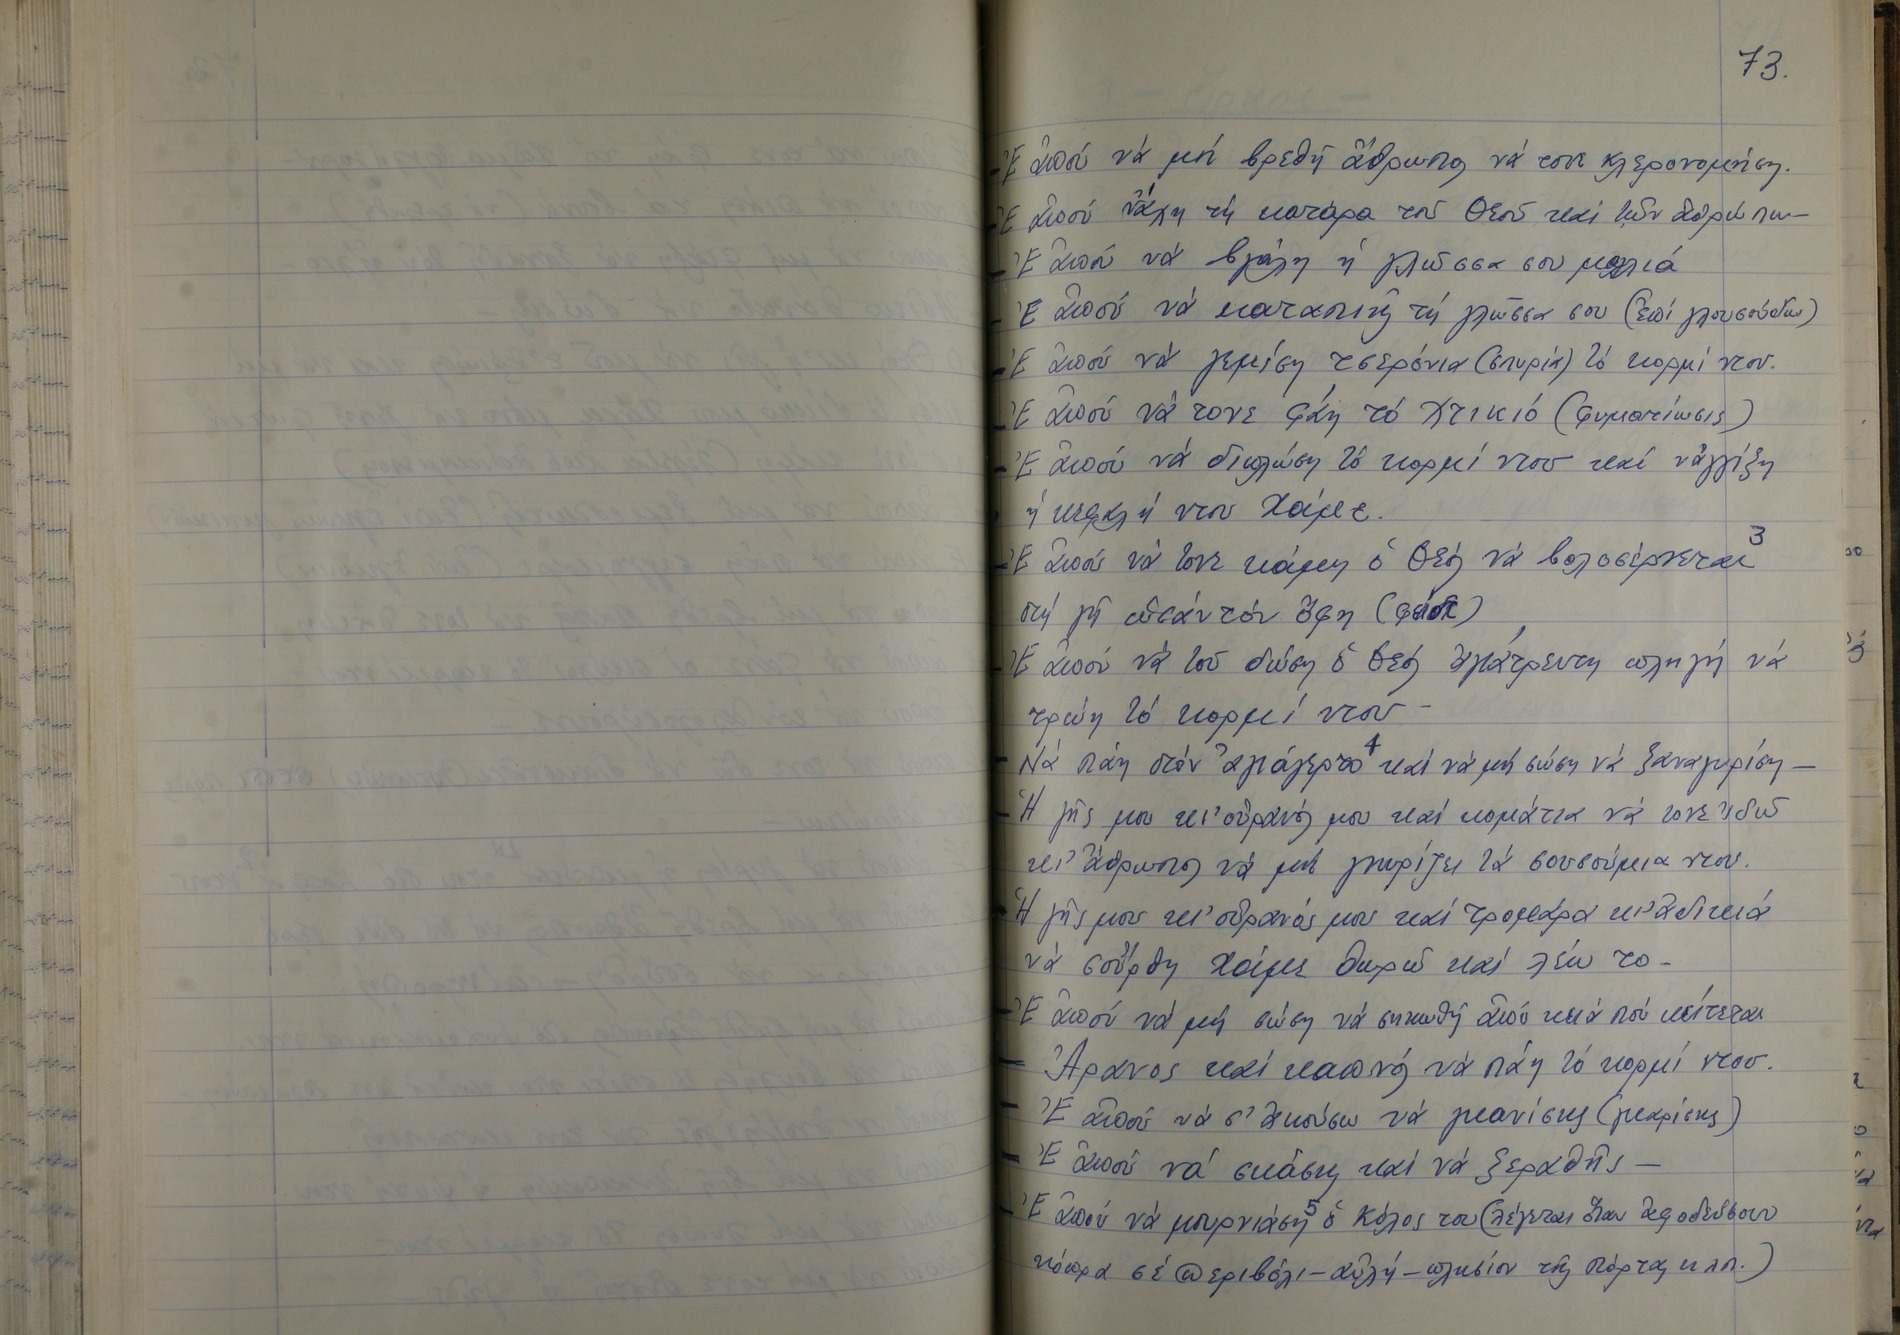 73.
- Ἔ ἀποὺ νά μή βρεθῇ ἄθρωπος νά τονε κλερονομήση.
- Ἔ ἀποὺ νἄχῃ τή κατάρα τοῦ Θεοῦ καί τῶν ἀθρώπω-
- Ἔ ἀποὺ νά βγάλη ἡ γλῶσσα σου μαλλιά
- Ἔ ἀποὺ νά καταπιῇ τή γλῶσσα σου (ἐπί γλουσούδων)
- Ἔ ἀποὺ νά γεμίση τσερόνια (σπυριά) τό κορμί ντου.
- Ἔ ἀποὺ νά τονε φάη τό χτικιό (φυματίωσις)
- Ἔ ἀποὺ νά διπλώση τό κορμί ντου καί νἀγγίξη
ἡ κεφαλή ντου χάμε.
- Ἔ ἀποὺ νά τονε κάμη ὁ Θεός νά βολοσέρνεται³
στή γῆ ὡσάν τόν ὄφη (φίδι)
- Ἔ ἀποὺ νά τοῦ δώση ὁ Θεός ἀγιάτρευτη πληγή νά
τρώη τό κορμί ντου -
- Νά πάη στόν ἀγιάγερτο⁴ καί νά μή σώση νά ξαναγυρίση -
- Ἡ γῆς μου κι' οὐρανός μου καί κομάτια νά τονε ἰδῶ
κι' ἄθρωπος νά μή γνωρίζει τά σουσούμια ντου.
- Ἡ γῆς μου κι' οὐρανός μου καί τρομάρα κι' ἀδικιά
νά σοὔρθη χάμε θωρῶ καί λέω το -
- Ἔ ἀποὺ νά μή σώση νά σηκωθῇ ἀπού κειά πού κοίτεται
- Ἄρανος καί καπνός νά πάη τό κορμί ντου.
- Ἔ ἀποὺ νά σ' ἀκούσω νά γκανίσης (γκαρίσης)
- Ἔ ἀποὺ νά σκάσης καί νά ξεραθῇς -
- Ἔ ἀποὺ νά μουρνιάση⁵ ὁ κῶλος του (λέγεται ὅταν ἀφοδεύσουν
κόπρα σέ περιβόλι - αὐλή - πλησίον τῆς πόρτας κλπ.)